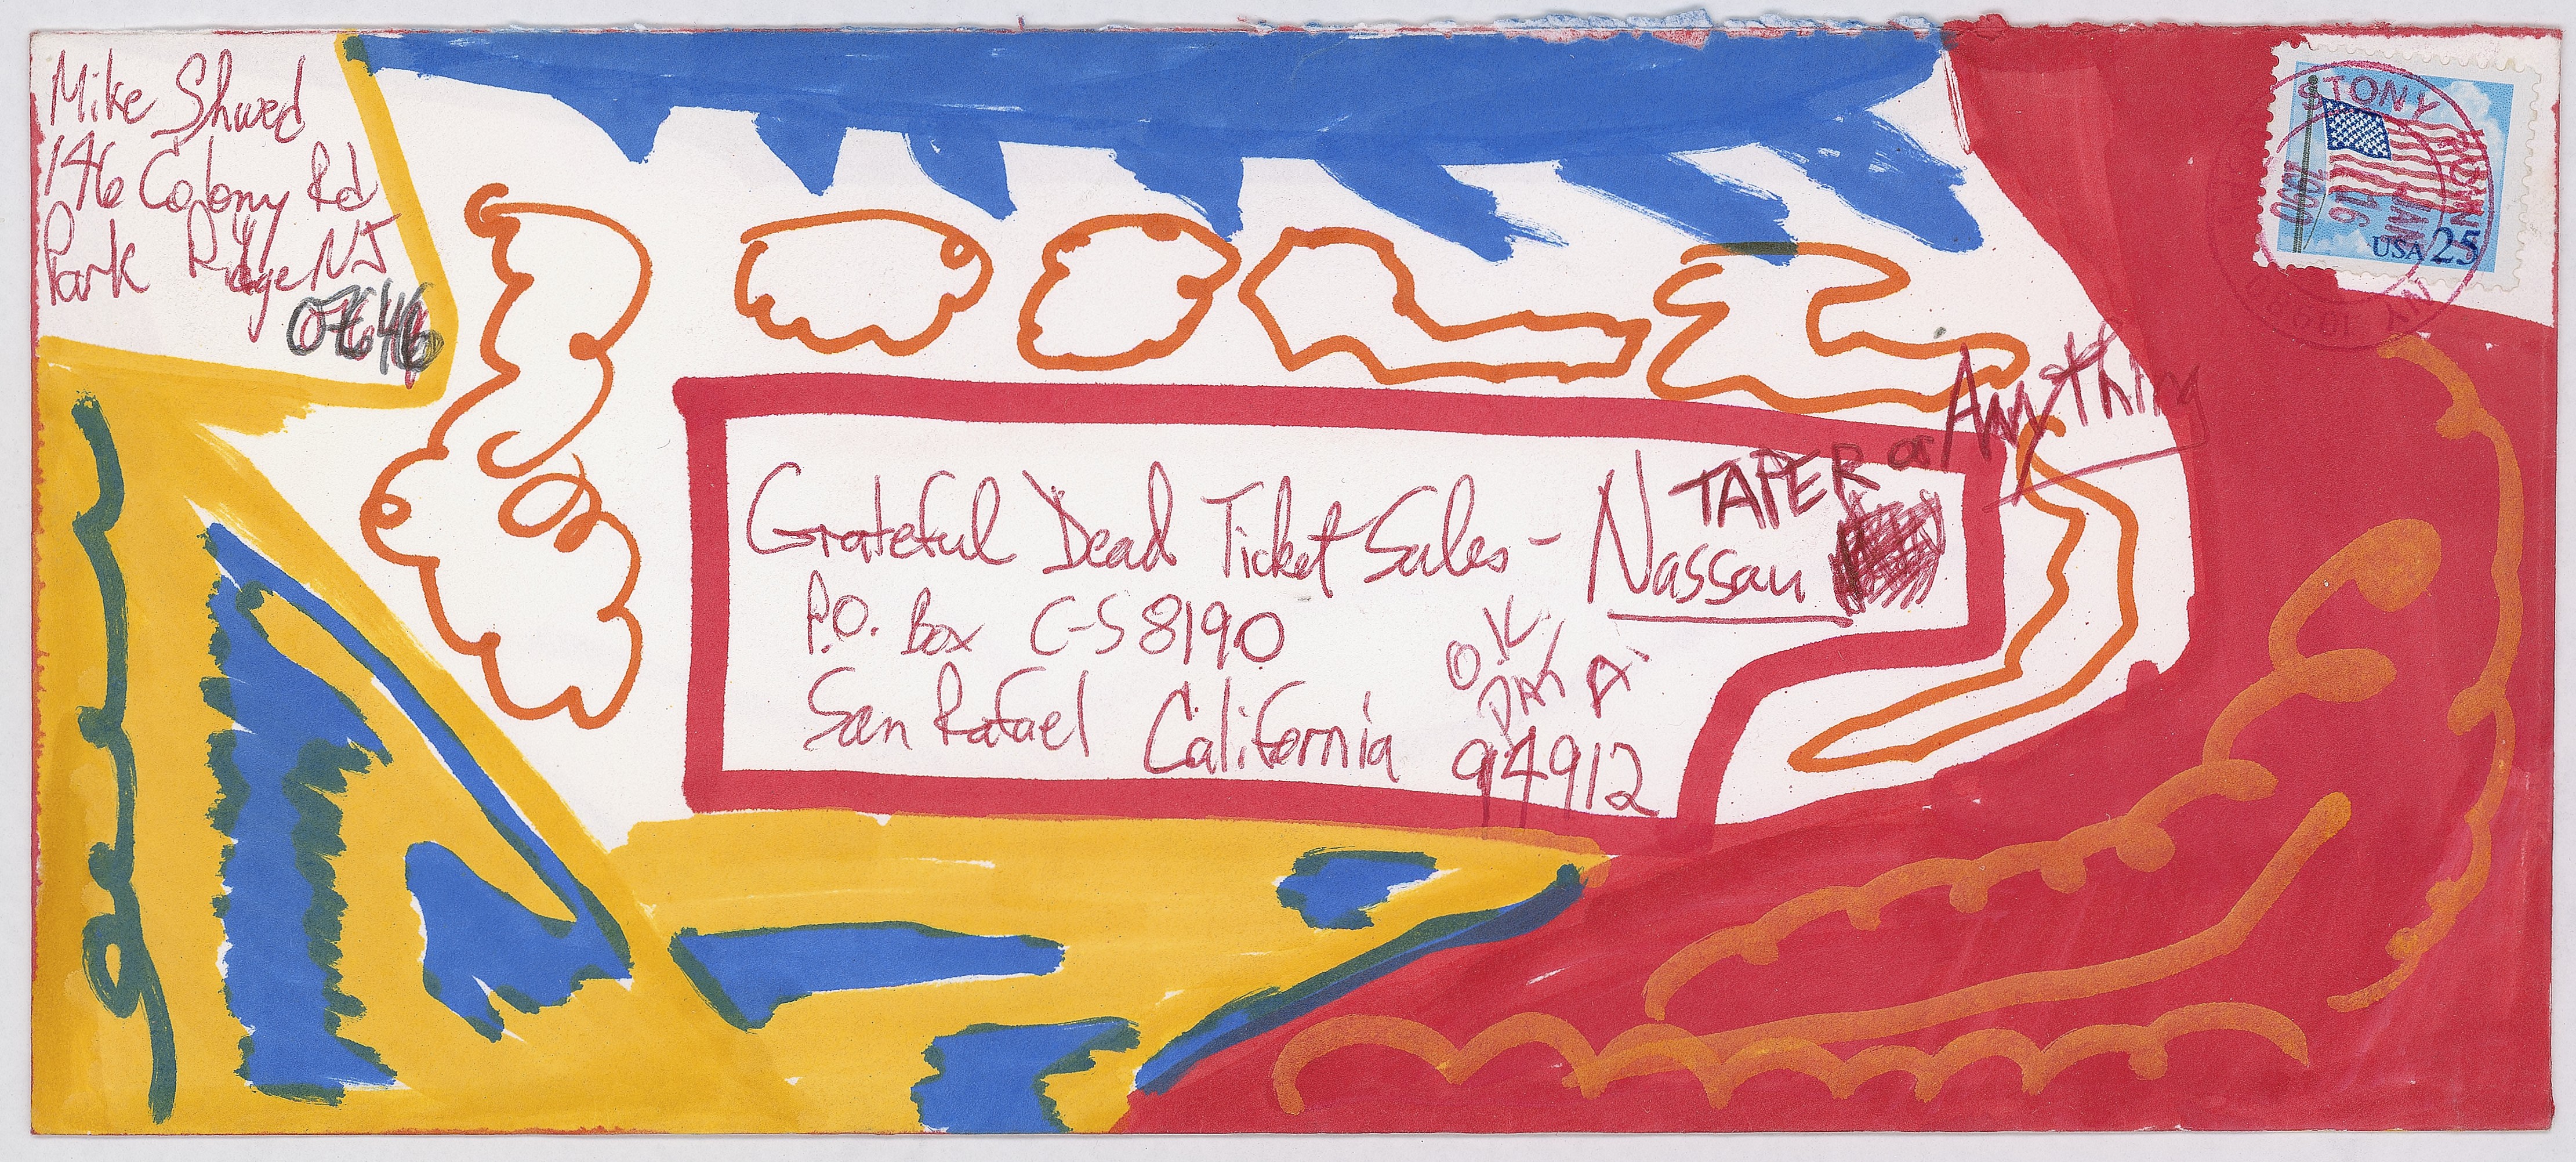 Mike Shwed
146 Colony Rd
Park Ridge NJ
07646
STONY POINT NY
JAN
16
1990
10980
USA 25
Anything
TAPER or
Grateful Dead Ticket Sales - Nassau
P.O. Box C-S 8190
San Rafael California 94912